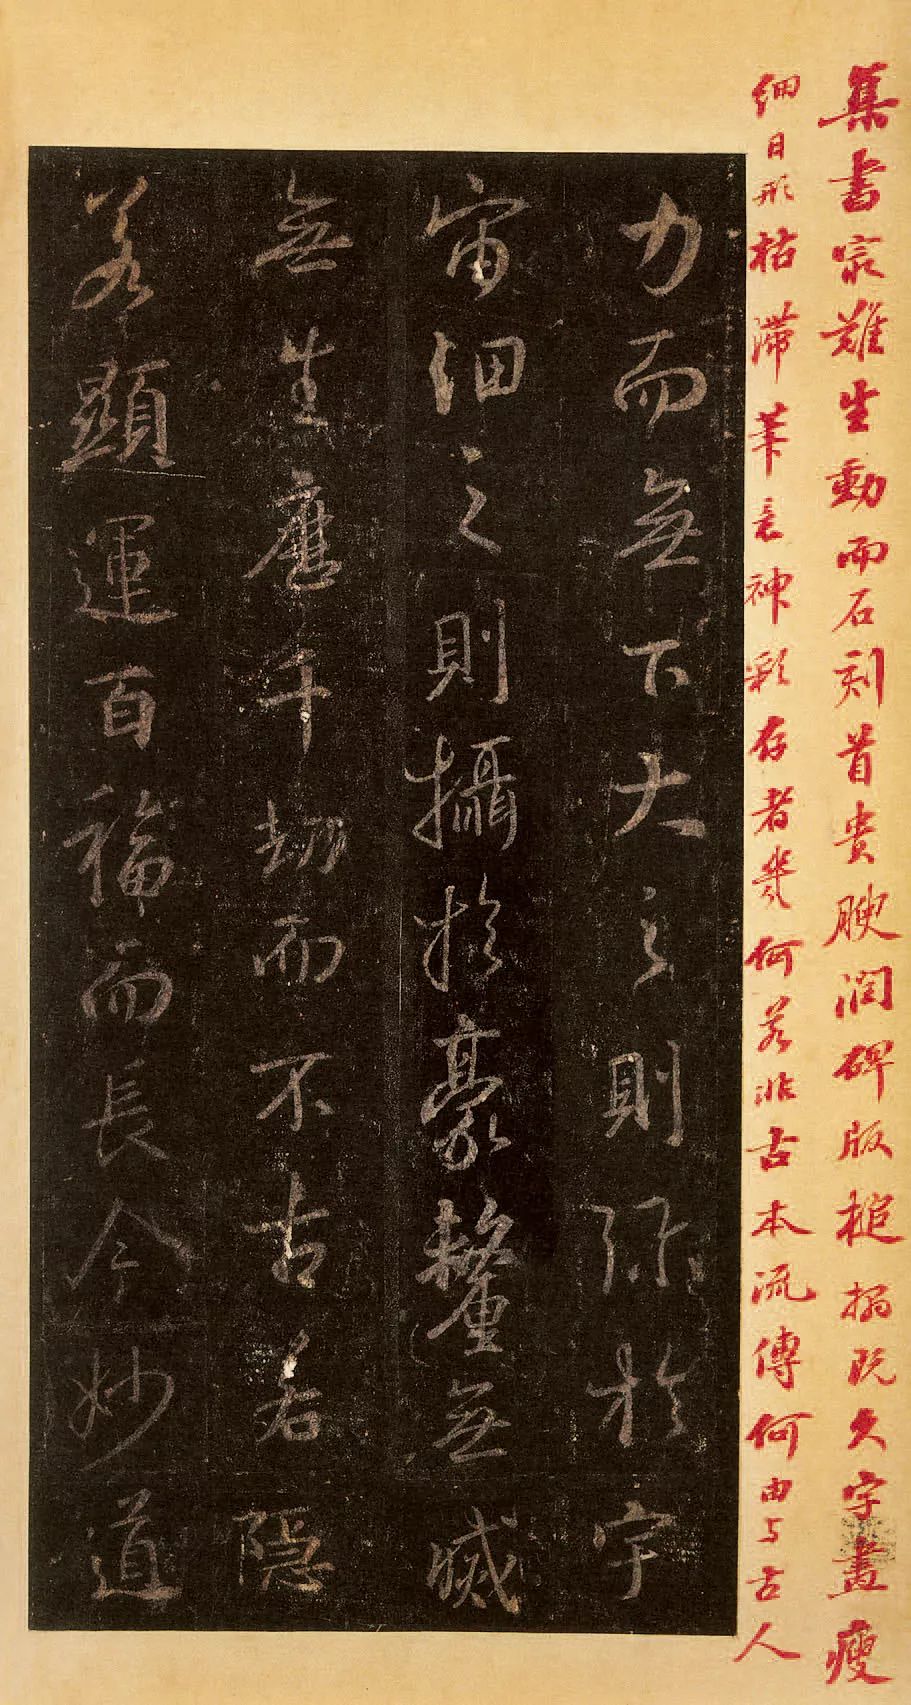 集書㝡難生動而石刻首貴腴潤碑版槌搨既久字畫瘦
細日形枯滯筆意神彩存者幾何若非古本流傳何由与古人
力而無下大之則弥於宇
宙細之則攝於豪釐無滅
無生歷千劫而不古若隱
若顯運百福而長今妙道